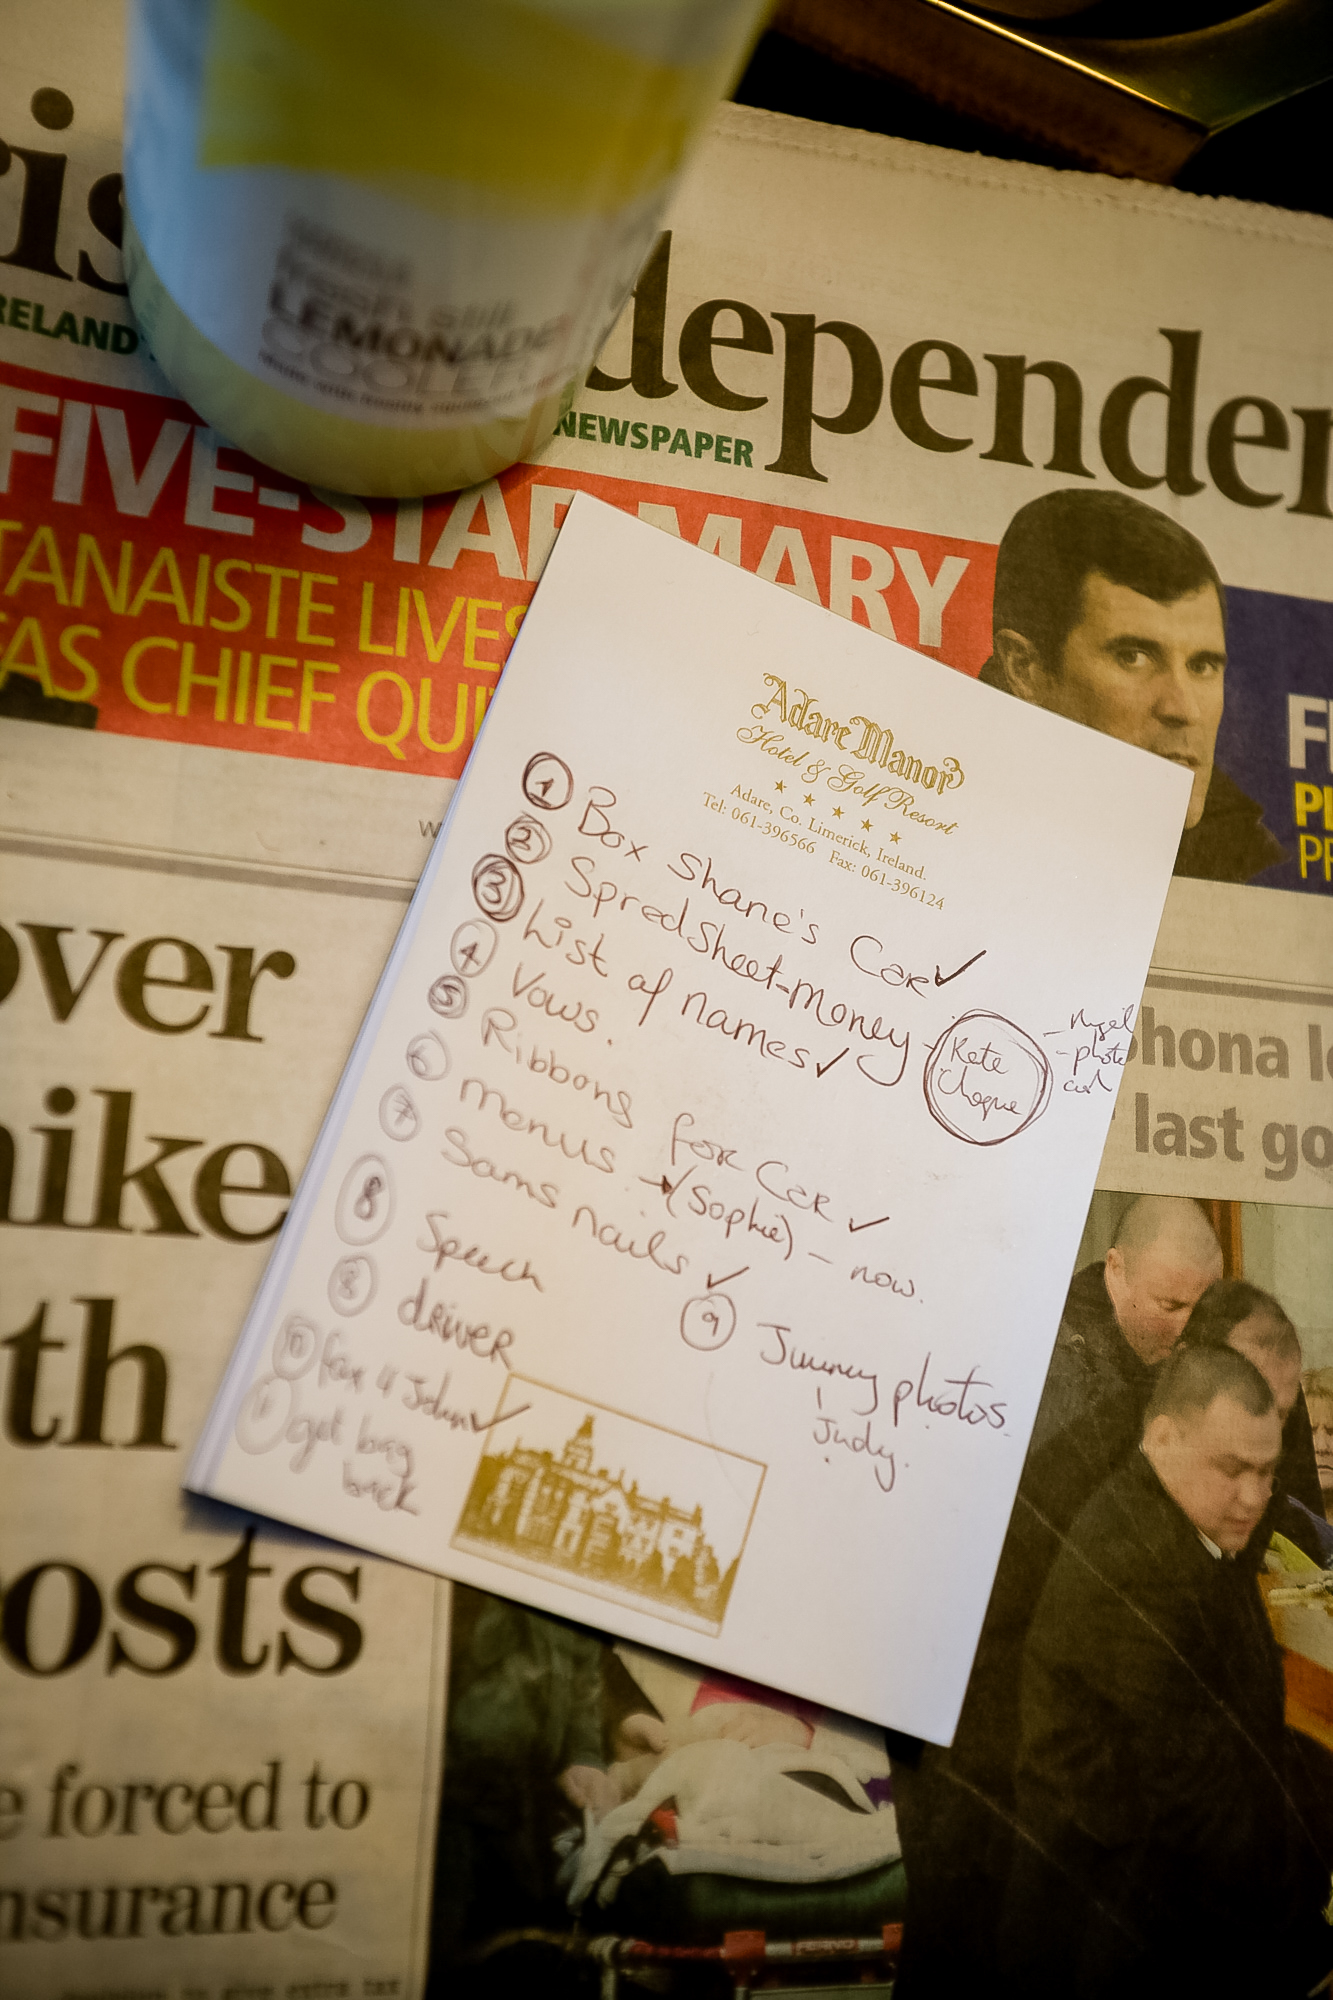 depender
RELAND
NEWSPAPER
LEMONADE
FIVE-STAR MARY
TANAISTE LIVES
FAS CHIEF QUI
Adare Manor
Hotel & Golf Resort
Adare, Co. Limerick, Ireland.
Tel: 061-396566 Fax: 061-396124
1 Box Shane's Car ✓
2 Spredsheet-Money - Kate Chogue
- Nigel
- photo
3 List of names ✓
4 Vows.
5 Ribbons for Car ✓
6 Menus (Sophie) - now.
7 Sams nails ✓
8 Speech
9 Jimmy photos.
Judy.
8 driver
10 fax 4 John ✓
11 get bag
back
over
hike
th
osts
e forced to
nsurance
hona le
last go
FERNO